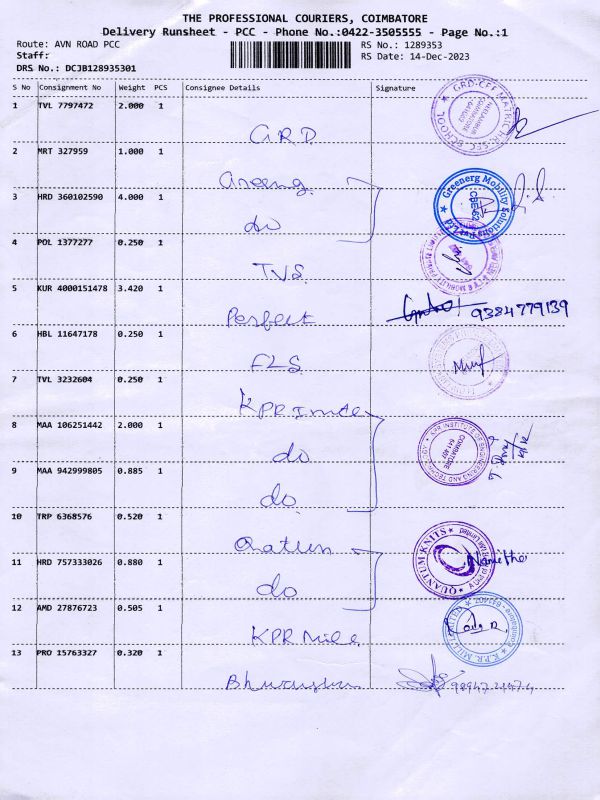 THE PROFESSIONAL COURIERS, COIMBATORE
Delivery Runsheet - PCC - Phone No.:0422-3505555 - Page No.:1
Route: AVN ROAD PCC
RS No.: 1289353
Staff:
RS Date: 14-Dec-2023
DRS No.: DCJB128935301
S No Consignment No Weight PCS Consignee Details Signature
1 TVL 7797472 2.000 1
G.R.D.
2 MRT 327959 1.000 1
3 HRD 360102590 4.000 1
do
Greenerg Mobility Solutions Pvt Ltd
4 POL 1377277 0.250 1
TVS
5 KUR 4000151478 3.420 1
Perfect 9384779139
6 HBL 11647178 0.250 1
FLS
7 TVL 3232604 0.250 1
KPR
8 MAA 106251442 2.000 1
do
KPR INSTITUTE OF ENGINEERING AND TECHNOLOGY
COIMBATORE
641 407
9 MAA 942999805 0.885 1
do
10 TRP 6368576 0.520 1
11 HRD 757333026 0.880 1
do
QUANTUM KNITS
12 AMD 27876723 0.505 1
KPR Mill
K.P.R. MILL LIMITED
13 PRO 15763327 0.320 1